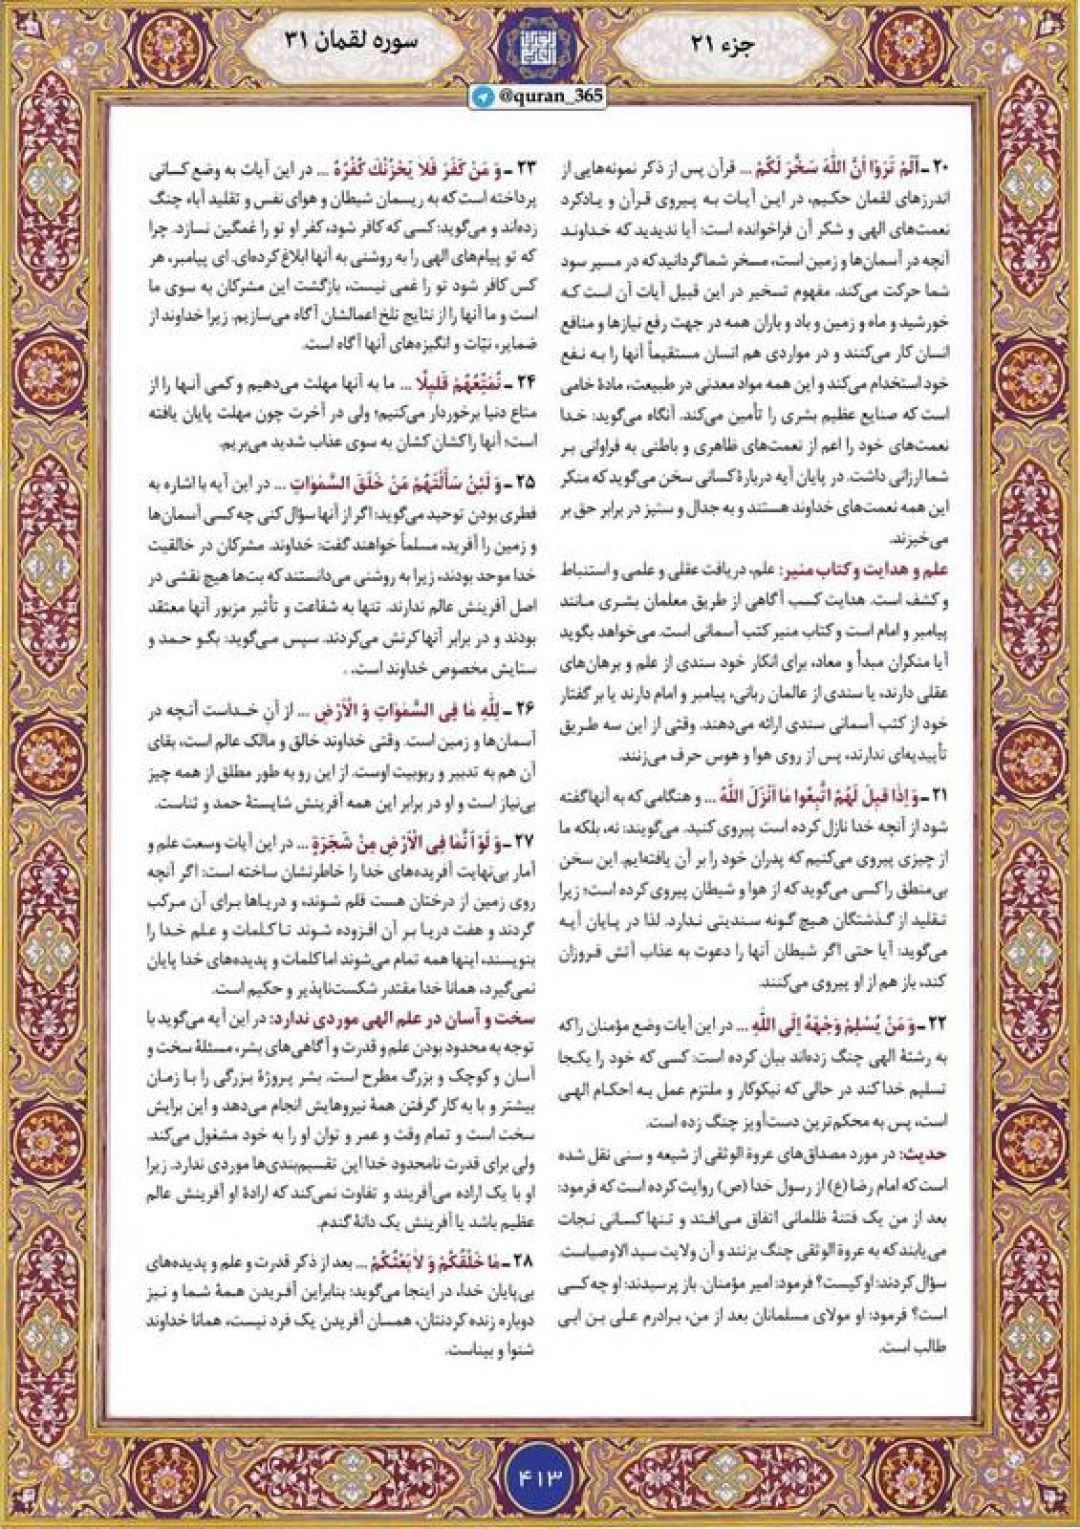 جزء ۲۱
سوره لقمان ۳۱
@quran_365
۲۰ ـ اَلَمْ تَرَوْا اَنَّ اللّٰهَ سَخَّرَ لَكُمْ ... قرآن پس از ذکر نمونه‌هایی از
اندرزهای لقمان حکیم، در این آیات به پیروی قرآن و یادکرد
نعمت‌های الهی و شکر آن فراخوانده است: آیا ندیدید که خداوند
آنچه در آسمان‌ها و زمین است، مسخر شما گردانید که در مسیر سود
شما حرکت می‌کند. مفهوم تسخیر در این قبیل آیات آن است که
خورشید و ماه و زمین و باد و باران همه در جهت رفع نیازها و منافع
انسان کار می‌کنند و در مواردی هم انسان مستقیماً آنها را به نفع
خود استخدام می‌کند و این همه مواد معدنی در طبیعت، مادهٔ خامی
است که صنایع عظیم بشری را تأمین می‌کند. آنگاه می‌گوید: خدا
نعمت‌های خود را اعم از نعمت‌های ظاهری و باطنی به فراوانی بر
شما ارزانی داشت. در پایان آیه دربارهٔ کسانی سخن می‌گوید که منکر
این همه نعمت‌های خداوند هستند و به جدال و ستیز در برابر حق بر
می‌خیزند.
علم و هدایت و کتاب منیر: علم، دریافت عقلی و علمی و استنباط
و کشف است. هدایت کسب آگاهی از طریق معلمان بشری مانند
پیامبر و امام است و کتاب منیر کتب آسمانی است. می‌خواهد بگوید
آیا منکران مبدأ و معاد، برای انکار خود سندی از علم و برهان‌های
عقلی دارند، یا سندی از عالمان ربانی، پیامبر و امام دارند یا بر گفتار
خود از کتب آسمانی سندی ارائه می‌دهند. وقتی از این سه طریق
تأییدیه‌ای ندارند، پس از روی هوا و هوس حرف می‌زنند.
۲۱ ـ وَ اِذَا قِيلَ لَهُمُ اتَّبِعُوا مَا اَنْزَلَ اللّٰهُ ... و هنگامی که به آنها گفته
شود از آنچه خدا نازل کرده است پیروی کنید. می‌گویند: نه، بلکه ما
از چیزی پیروی می‌کنیم که پدران خود را بر آن یافته‌ایم. این سخن
بی‌منطق را کسی می‌گوید که از هوا و شیطان پیروی کرده است؛ زیرا
تقلید از گذشتگان هیچ گونه سندیتی ندارد. لذا در پایان آیه
می‌گوید: آیا حتی اگر شیطان آنها را دعوت به عذاب آتش فروزان
کند، باز هم از او پیروی می‌کنند.
۲۲ ـ وَ مَنْ يُسْلِمْ وَجْهَهُ اِلَى اللّٰهِ ... در این آیات وضع مؤمنان را که
به رشتهٔ الهی چنگ زده‌اند بیان کرده است: کسی که خود را یکجا
تسلیم خدا کند در حالی که نیکوکار و ملتزم عمل به احکام الهی
است، پس به محکم‌ترین دست‌آویز چنگ زده است.
حدیث: در مورد مصداق‌های عروة الوثقی از شیعه و سنی نقل شده
است که امام رضا (ع) از رسول خدا (ص) روایت کرده است که فرمود:
بعد از من یک فتنهٔ ظلمانی اتفاق می‌افتد و تنها کسانی نجات
می‌یابند که به عروة الوثقی چنگ بزنند و آن ولایت سید الاوصیاست.
سؤال کردند: او کیست؟ فرمود: امیر مؤمنان. باز پرسیدند: او چه کسی
است؟ فرمود: او مولای مسلمانان بعد از من، برادرم علی بن ابی
طالب است.
۲۳ ـ وَ مَنْ كَفَرَ فَلَا يَحْزُنْكَ كُفْرُهُ ... در این آیات به وضع کسانی
پرداخته است که به ریسمان شیطان و هوای نفس و تقلید آباء چنگ
زده‌اند و می‌گوید: کسی که کافر شود، کفر او تو را غمگین نسازد. چرا
که تو پیام‌های الهی را به روشنی به آنها ابلاغ کرده‌ای. ای پیامبر، هر
کس کافر شود تو را غمی نیست، بازگشت این مشرکان به سوی ما
است و ما آنها را از نتایج تلخ اعمالشان آگاه می‌سازیم. زیرا خداوند از
ضمایر، نیّات و انگیزه‌های آنها آگاه است.
۲۴ ـ نُمَتِّعُهُمْ قَلِيلًا ... ما به آنها مهلت می‌دهیم و کمی آنها را از
متاع دنیا برخوردار می‌کنیم؛ ولی در آخرت چون مهلت پایان یافته
است؛ آنها را کشان کشان به سوی عذاب شدید می‌بریم.
۲۵ ـ وَ لَئِنْ سَأَلْتَهُمْ مَنْ خَلَقَ السَّمٰوَاتِ ... در این آیه با اشاره به
فطری بودن توحید می‌گوید: اگر از آنها سؤال کنی چه کسی آسمان‌ها
و زمین را آفرید، مسلماً خواهند گفت: خداوند. مشرکان در خالقیت
خدا موحد بودند، زیرا به روشنی می‌دانستند که بت‌ها هیچ نقشی در
اصل آفرینش عالم ندارند. تنها به شفاعت و تأثیر مزبور آنها معتقد
بودند و در برابر آنها کرنش می‌کردند. سپس می‌گوید: بگو حمد و
ستایش مخصوص خداوند است. .
۲۶ ـ لِلّٰهِ مَا فِى السَّمٰوَاتِ وَ الْاَرْضِ ... از آنِ خداست آنچه در
آسمان‌ها و زمین است. وقتی خداوند خالق و مالک عالم است، بقای
آن هم به تدبیر و ربوبیت اوست. از این رو به طور مطلق از همه چیز
بی‌نیاز است و او در برابر این همه آفرینش شایستهٔ حمد و ثناست.
۲۷ ـ وَ لَوْ اَنَّمَا فِى الْاَرْضِ مِنْ شَجَرَةٍ ... در این آیات وسعت علم و
آمار بی‌نهایت آفریده‌های خدا را خاطرنشان ساخته است: اگر آنچه
روی زمین از درختان هست قلم شوند، و دریاها برای آن مرکب
گردند و هفت دریا بر آن افزوده شوند تا کلمات و علم خدا را
بنویسند، اینها همه تمام می‌شوند اما کلمات و پدیده‌های خدا پایان
نمی‌گیرد، همانا خدا مقتدر شکست‌ناپذیر و حکیم است.
سخت و آسان در علم الهی موردی ندارد: در این آیه می‌گوید با
توجه به محدود بودن علم و قدرت و آگاهی‌های بشر، مسئلهٔ سخت و
آسان و کوچک و بزرگ مطرح است. بشر پروژهٔ بزرگی را با زمان
بیشتر و با به کار گرفتن همهٔ نیروهایش انجام می‌دهد و این برایش
سخت است و تمام وقت و عمر و توان او را به خود مشغول می‌کند.
ولی برای قدرت نامحدود خدا این تقسیم‌بندی‌ها موردی ندارد. زیرا
او با یک اراده می‌آفریند و تفاوت نمی‌کند که ارادهٔ او آفرینش عالم
عظیم باشد یا آفرینش یک دانهٔ گندم.
۲۸ ـ مَا خَلْقُكُمْ وَ لَا بَعْثُكُمْ ... بعد از ذکر قدرت و علم و پدیده‌های
بی‌پایان خدا، در اینجا می‌گوید: بنابراین آفریدن همهٔ شما و نیز
دوباره زنده کردنتان، همسان آفریدن یک فرد نیست، همانا خداوند
شنوا و بیناست.
۴۱۳